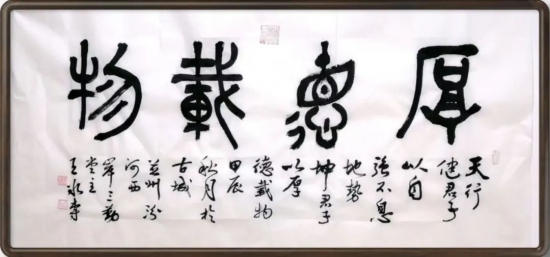 厚德載物
天行
健君子
以自
強不息
地势
坤君子
以厚
德載物
甲辰
秋月於
古城
並州汾
河西
岸三勤
堂主
王永李